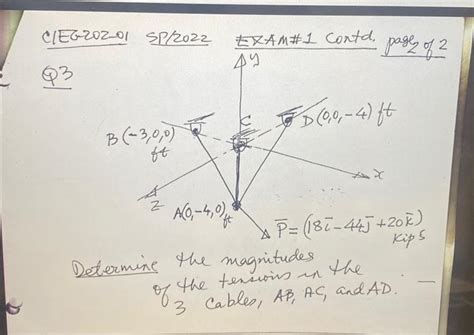 CIEG-202-01 SP/2022 EXAM#1 Contd. page 2 of 2
Q3
y
C
D(0,0,-4) ft
B(-3,0,0)
ft
x
z
A(0,-4,0) ft
P̄ = (18ī-44j̄+20k̄)
Kips
Determine the magnitudes
of the tensions in the
3 cables, AB, AC, and AD.